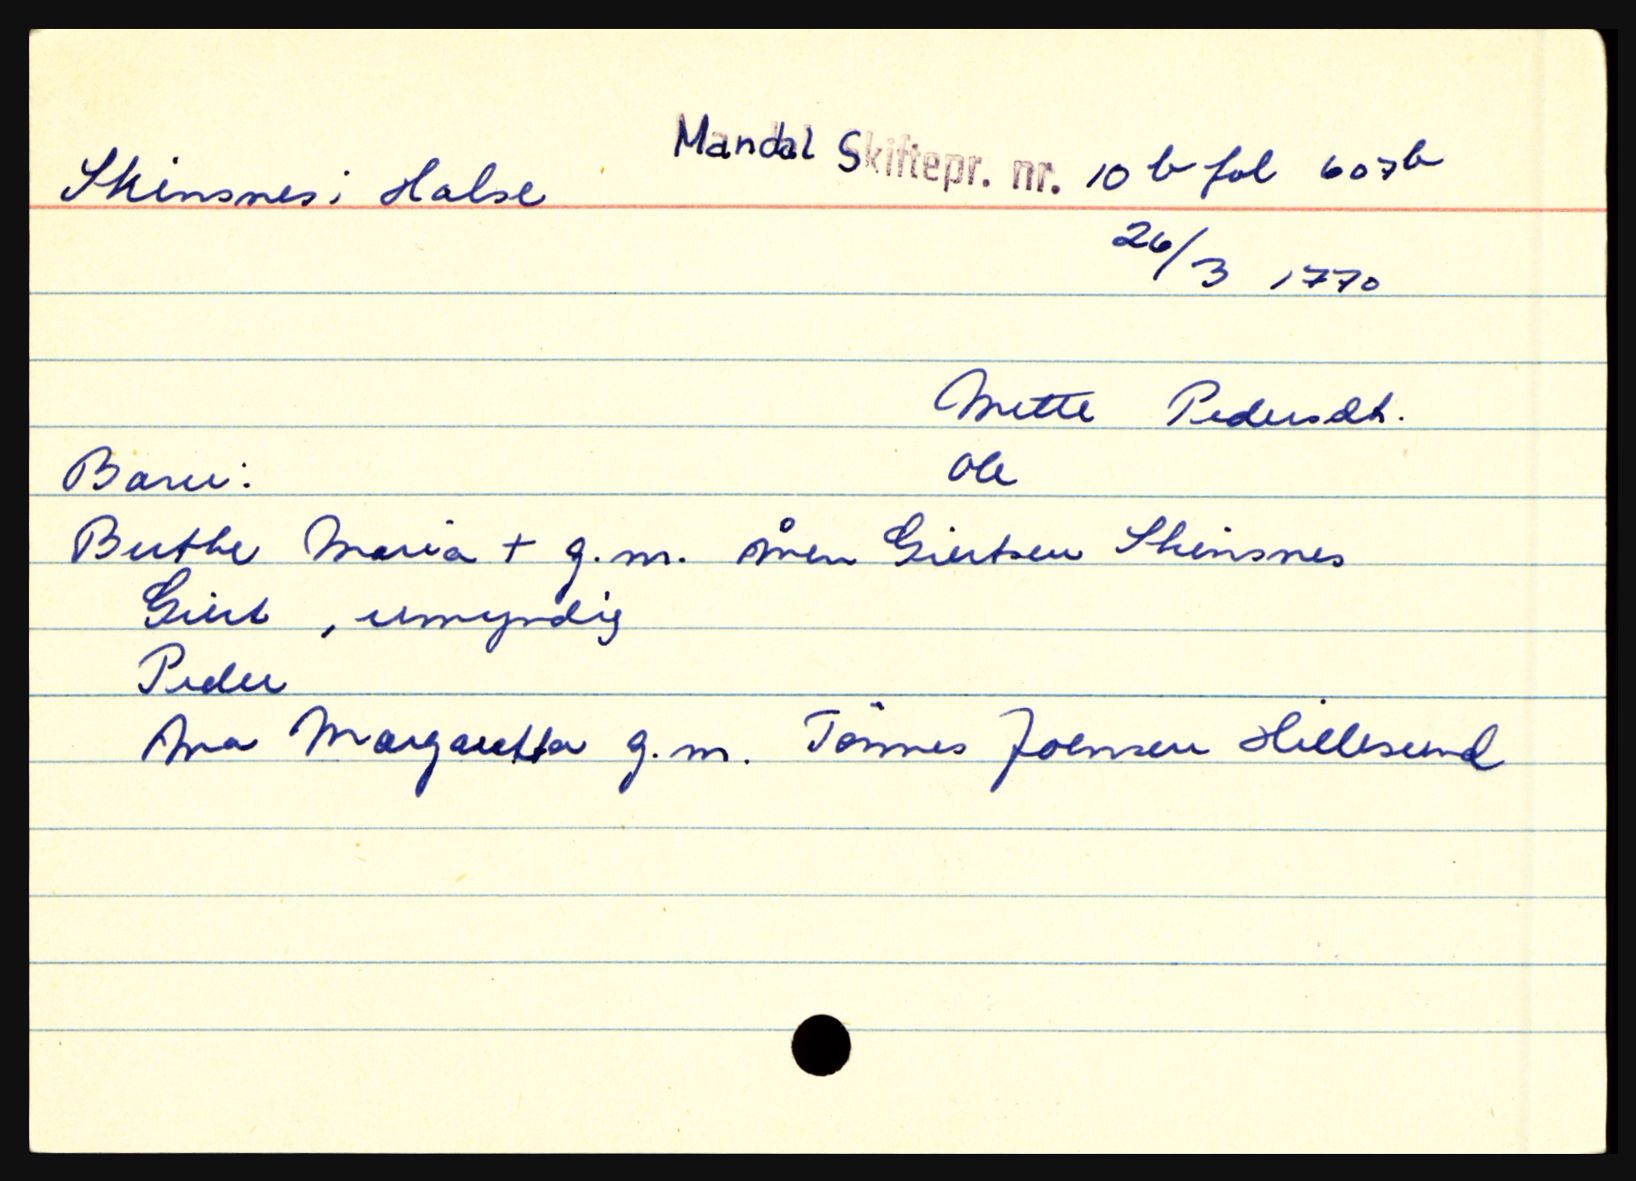 Mandal Skiftepr. nr. 10 b fol 607b
Skinsnes i Halse
26/3 1770
Mette Pedersdt.
Barn: Ole
Berthe Maria + g.m. Åmen Giertsen Skinsnes
Giert, umyndig
Peder
Ana Margaretta g.m. Tönnes Joensen Hillesund